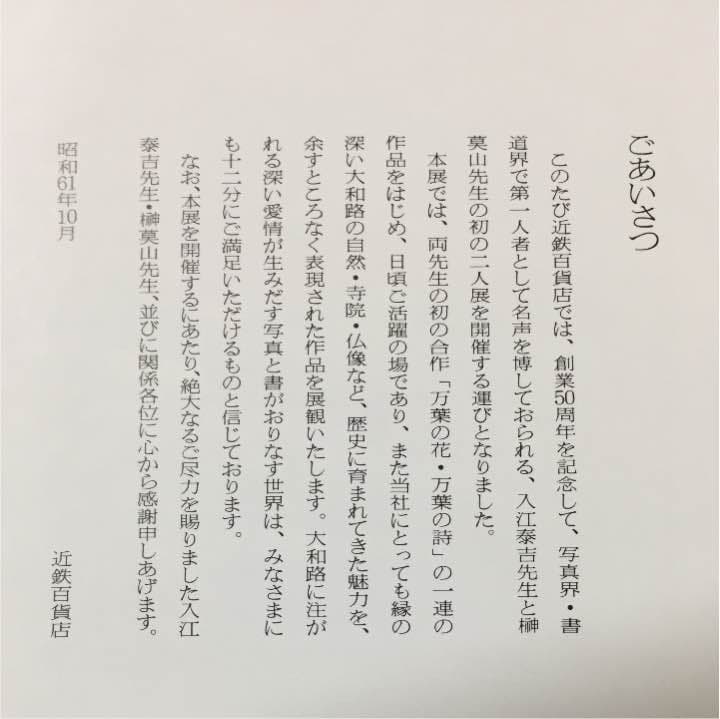 ごあいさつ
このたび近鉄百貨店では、創業50周年を記念して、写真界・書
道界で第一人者として名声を博しておられる、入江泰吉先生と榊
莫山先生の初の二人展を開催する運びとなりました。
本展では、両先生の初の合作「万葉の花・万葉の詩」の一連の
作品をはじめ、日頃ご活躍の場であり、また当社にとっても縁の
深い大和路の自然・寺院・仏像など、歴史に育まれてきた魅力を、
余すところなく表現された作品を展観いたします。大和路に注が
れる深い愛情が生みだす写真と書がおりなす世界は、みなさまに
も十二分にご満足いただけるものと信じております。
なお、本展を開催するにあたり、絶大なるご尽力を賜りました入江
泰吉先生・榊莫山先生、並びに関係各位に心から感謝申しあげます。
昭和61年10月
近鉄百貨店